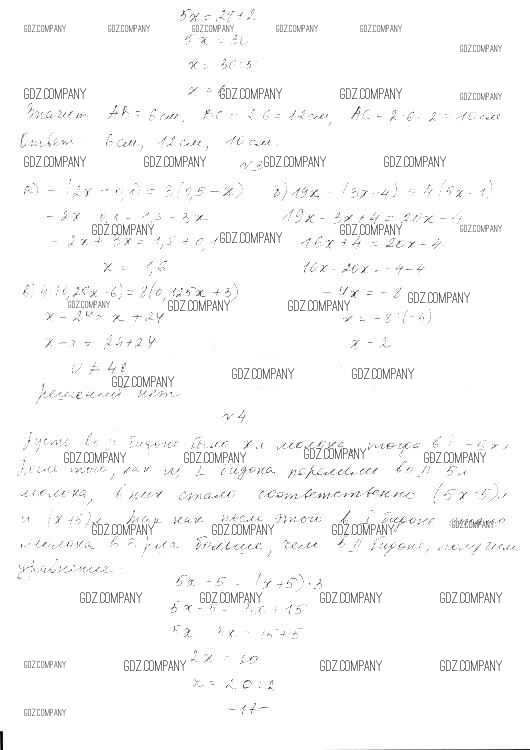 5x = 28+2
GDZ.COMPANY GDZ.COMPANY GDZ.COMPANY GDZ.COMPANY GDZ.COMPANY
5x = 30
GDZ.COMPANY
x = 30:5
x = 6
GDZ.COMPANY GDZ.COMPANY GDZ.COMPANY GDZ.COMPANY
Значит AB = 6см, BC = 2·6 = 12см, AC = 2·6-2 = 10см
Ответ 6см, 12см, 10см.
GDZ.COMPANY GDZ.COMPANY GDZ.COMPANY GDZ.COMPANY
№3
а) -(2x+0,1) = 3(0,5-x) б) 19x-(3x-4) = 4(5x-1)
-2x-0,1 = 1,5-3x 19x-3x+4 = 20x-4
GDZ.COMPANY GDZ.COMPANY GDZ.COMPANY
-2x+3x = 1,5+0,1 16x+4 = 20x-4
GDZ.COMPANY
x = 1,6 16x-20x = -4-4
в) 4(0,25x-6) = 8(0,125x+3) -4x = -8
GDZ.COMPANY GDZ.COMPANY GDZ.COMPANY GDZ.COMPANY
x-24 = x+24 x = -8:(-4)
x-x = 24+24 x = 2
0 ≠ 48
GDZ.COMPANY GDZ.COMPANY GDZ.COMPANY
решений нет
№4
Пусть во II бидоне было x л молока, тогда в I - 5x л
GDZ.COMPANY GDZ.COMPANY GDZ.COMPANY GDZ.COMPANY
после того, как из I бидона перелили во II 5л
молока, в них стало соответственно (5x-5)л
и (x+5)л. Так как после этого в I бидоне
GDZ.COMPANY GDZ.COMPANY GDZ.COMPANY GDZ.COMPANY
молока в 3 раза больше, чем во II бидоне, получим
уравнение:
5x-5 = (x+5)·3
GDZ.COMPANY GDZ.COMPANY GDZ.COMPANY GDZ.COMPANY
5x-5 = 3x+15
5x-3x = 15+5
2x = 20
GDZ.COMPANY GDZ.COMPANY GDZ.COMPANY GDZ.COMPANY
x = 20:2
-17-
GDZ.COMPANY